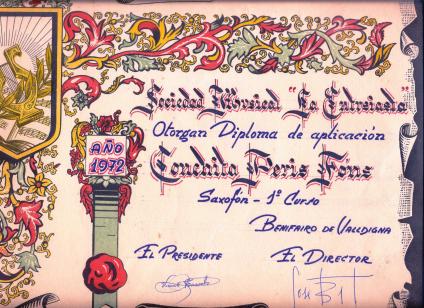 Sociedad Musical "La Entusiasta"
Otorgan Diploma de aplicación
Conchita Peris Fons
Saxofón - 1º Curso
AÑO
1972
Benifairo de Valldigna
El Presidente
El Director